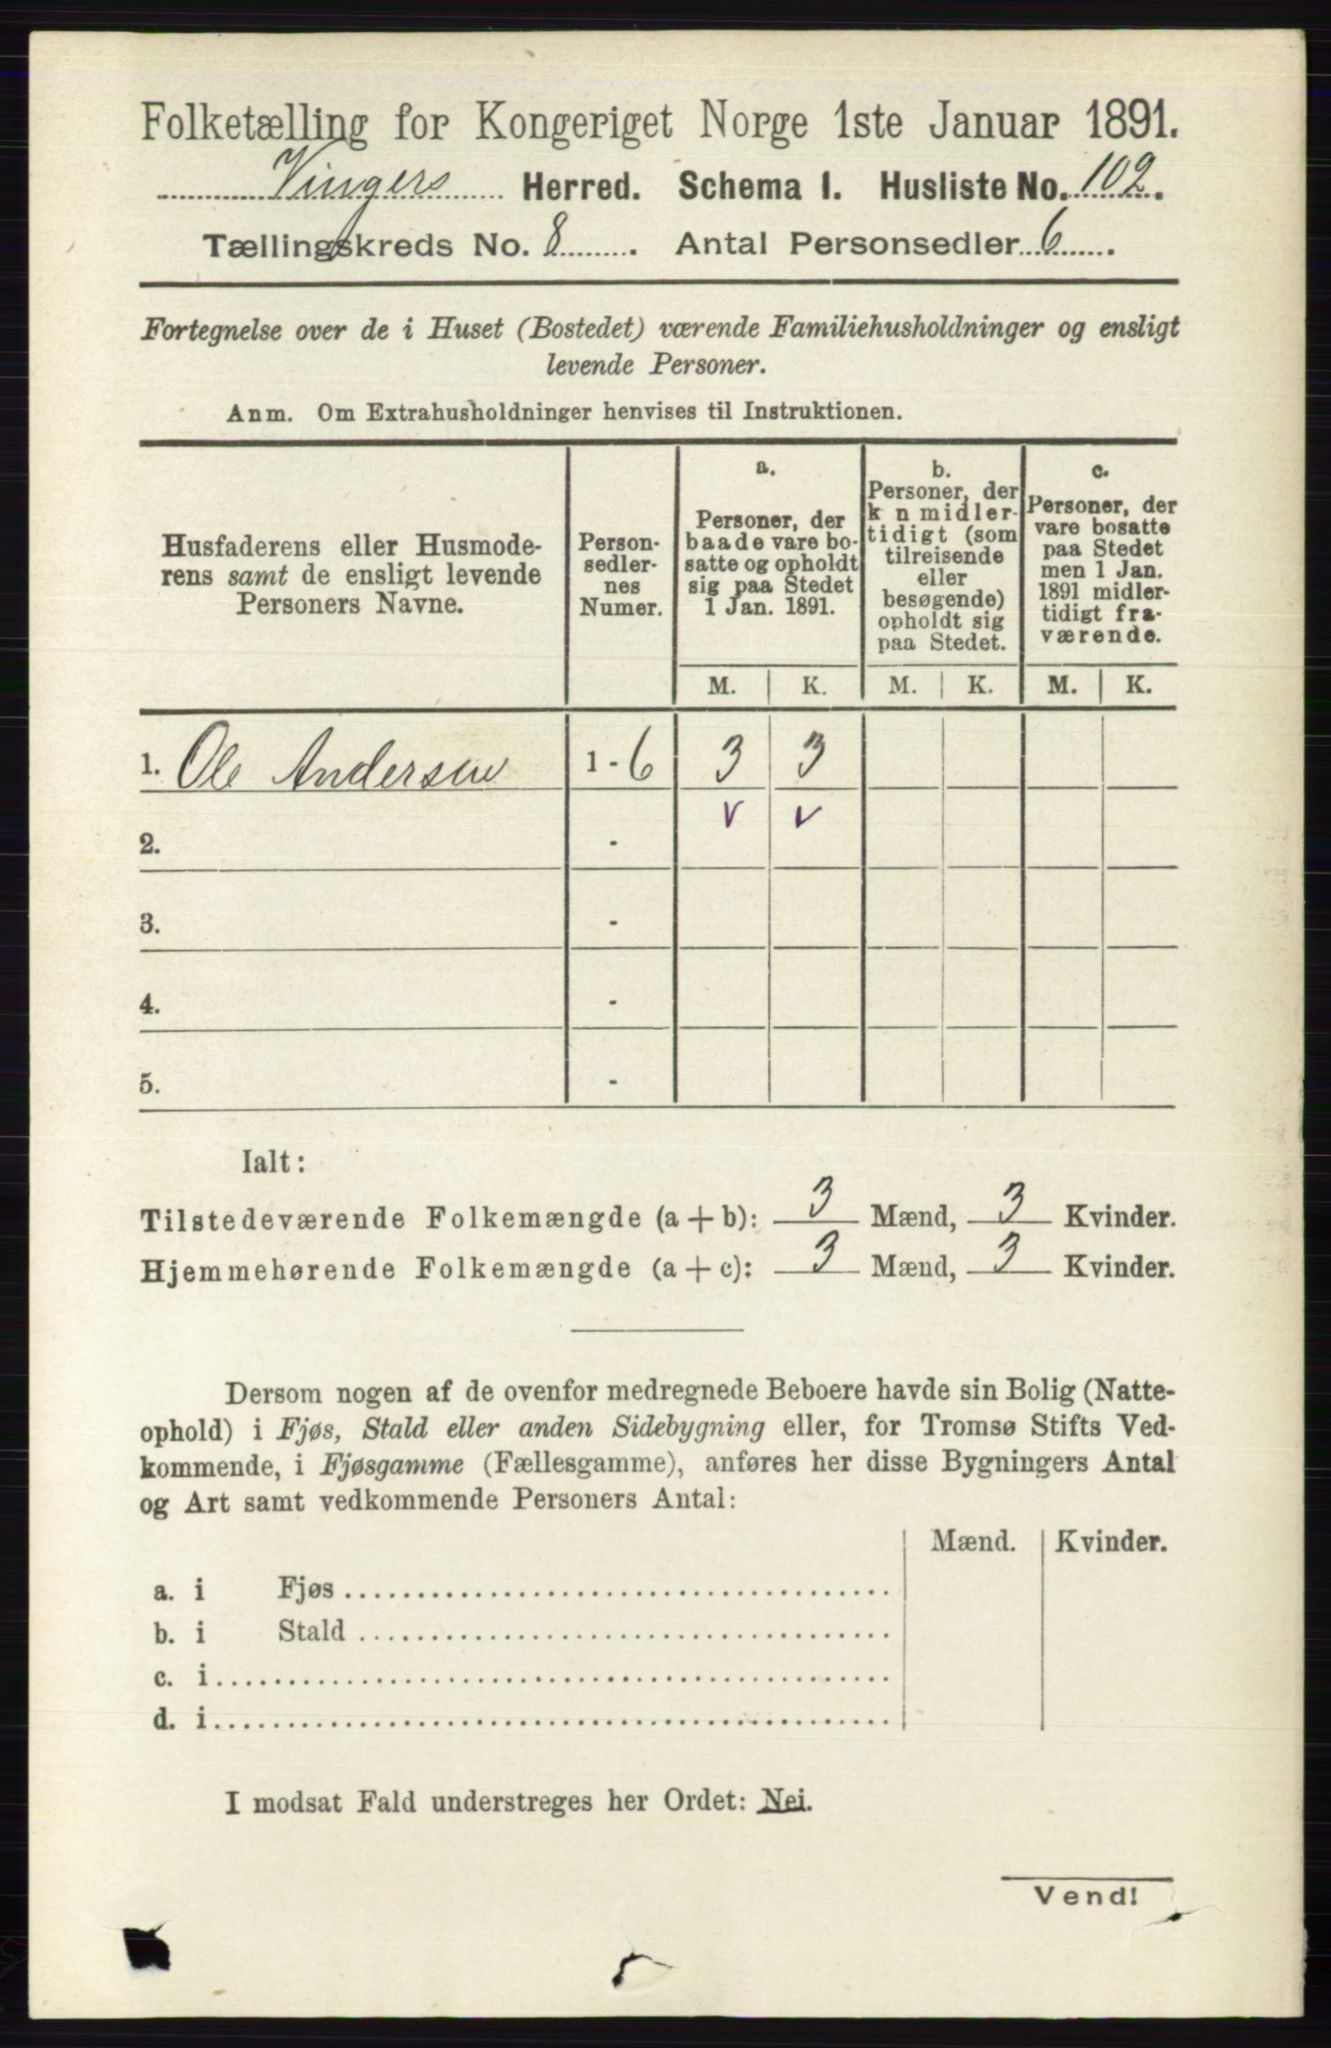 Folketælling for Kongeriget Norge 1ste Januar 1891.
Vingers Herred. Schema I. Husliste No. 102.
Tællingskreds No. 8. Antal Personsedler 6.
Fortegnelse over de i Huset (Bostedet) værende Familiehusholdninger og ensligt
levende Personer.
Anm. Om Extrahusholdninger henvises til Instruktionen.
Husfaderens eller Husmode-
rens samt de ensligt levende
Personers Navne.
Person-
sedler-
nes
Numer.
a.
Personer, der
baade vare bo-
satte og opholdt
sig paa Stedet
1 Jan. 1891.
b.
Personer, der
k n midler-
tidigt (som
tilreisende
eller
besøgende)
opholdt sig
paa Stedet.
c.
Personer, der
vare bosatte
paa Stedet
men 1 Jan.
1891 midler-
tidigt fra-
værende.
M. K. M. K. M. K.
1. Ole Andersen 1 - 6 3 3
v v
2. -
3. -
4. -
5. -
Ialt:
Tilstedeværende Folkemængde (a + b): 3 Mænd, 3 Kvinder.
Hjemmehørende Folkemængde (a + c): 3 Mænd, 3 Kvinder.
Dersom nogen af de ovenfor medregnede Beboere havde sin Bolig (Natte-
ophold) i Fjøs, Stald eller anden Sidebygning eller, for Tromsø Stifts Ved-
kommende, i Fjøsgamme (Fællesgamme), anføres her disse Bygningers Antal
og Art samt vedkommende Personers Antal:
Mænd. Kvinder.
a. i Fjøs
b. i Stald
c. i
d. i
I modsat Fald understreges her Ordet: Nei.
Vend!